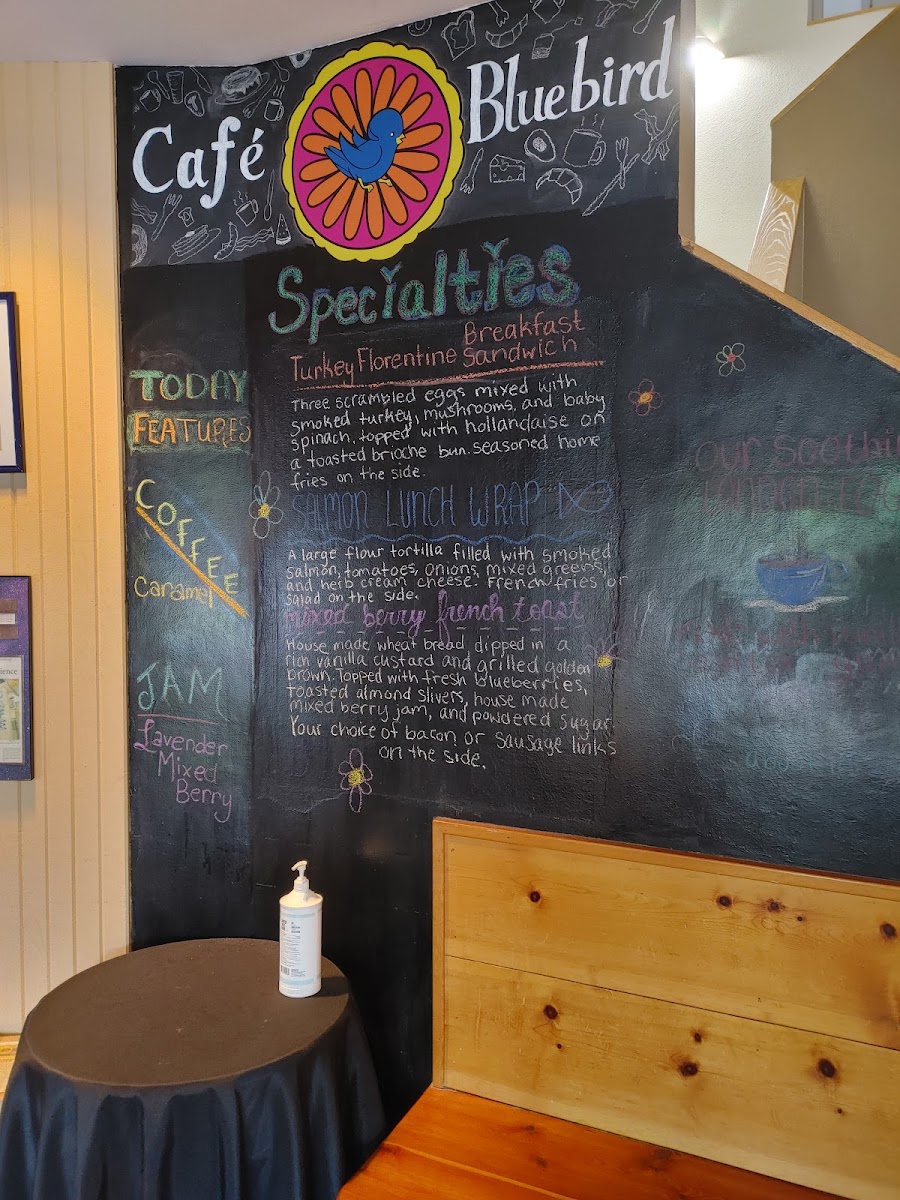 Café Bluebird
Specialties
Turkey Florentine Breakfast
Sandwich
Three scrambled eggs mixed with
smoked turkey, mushrooms, and baby
spinach. topped with hollandaise on
a toasted brioche bun. seasoned home
fries on the side.
SALMON LUNCH WRAP
A large flour tortilla filled with smoked
salmon, tomatoes, onions, mixed greens,
and herb cream cheese. French fries or
salad on the side.
mixed berry french toast
House made wheat bread dipped in a
rich vanilla custard and grilled golden
brown. Topped with fresh blueberries,
toasted almond slivers, house made
mixed berry jam, and powdered sugar.
Your choice of bacon or sausage links
on the side.
TODAY
FEATURES
COFFEE
Caramel
JAM
Lavender
Mixed
Berry
our soothing
LONDON